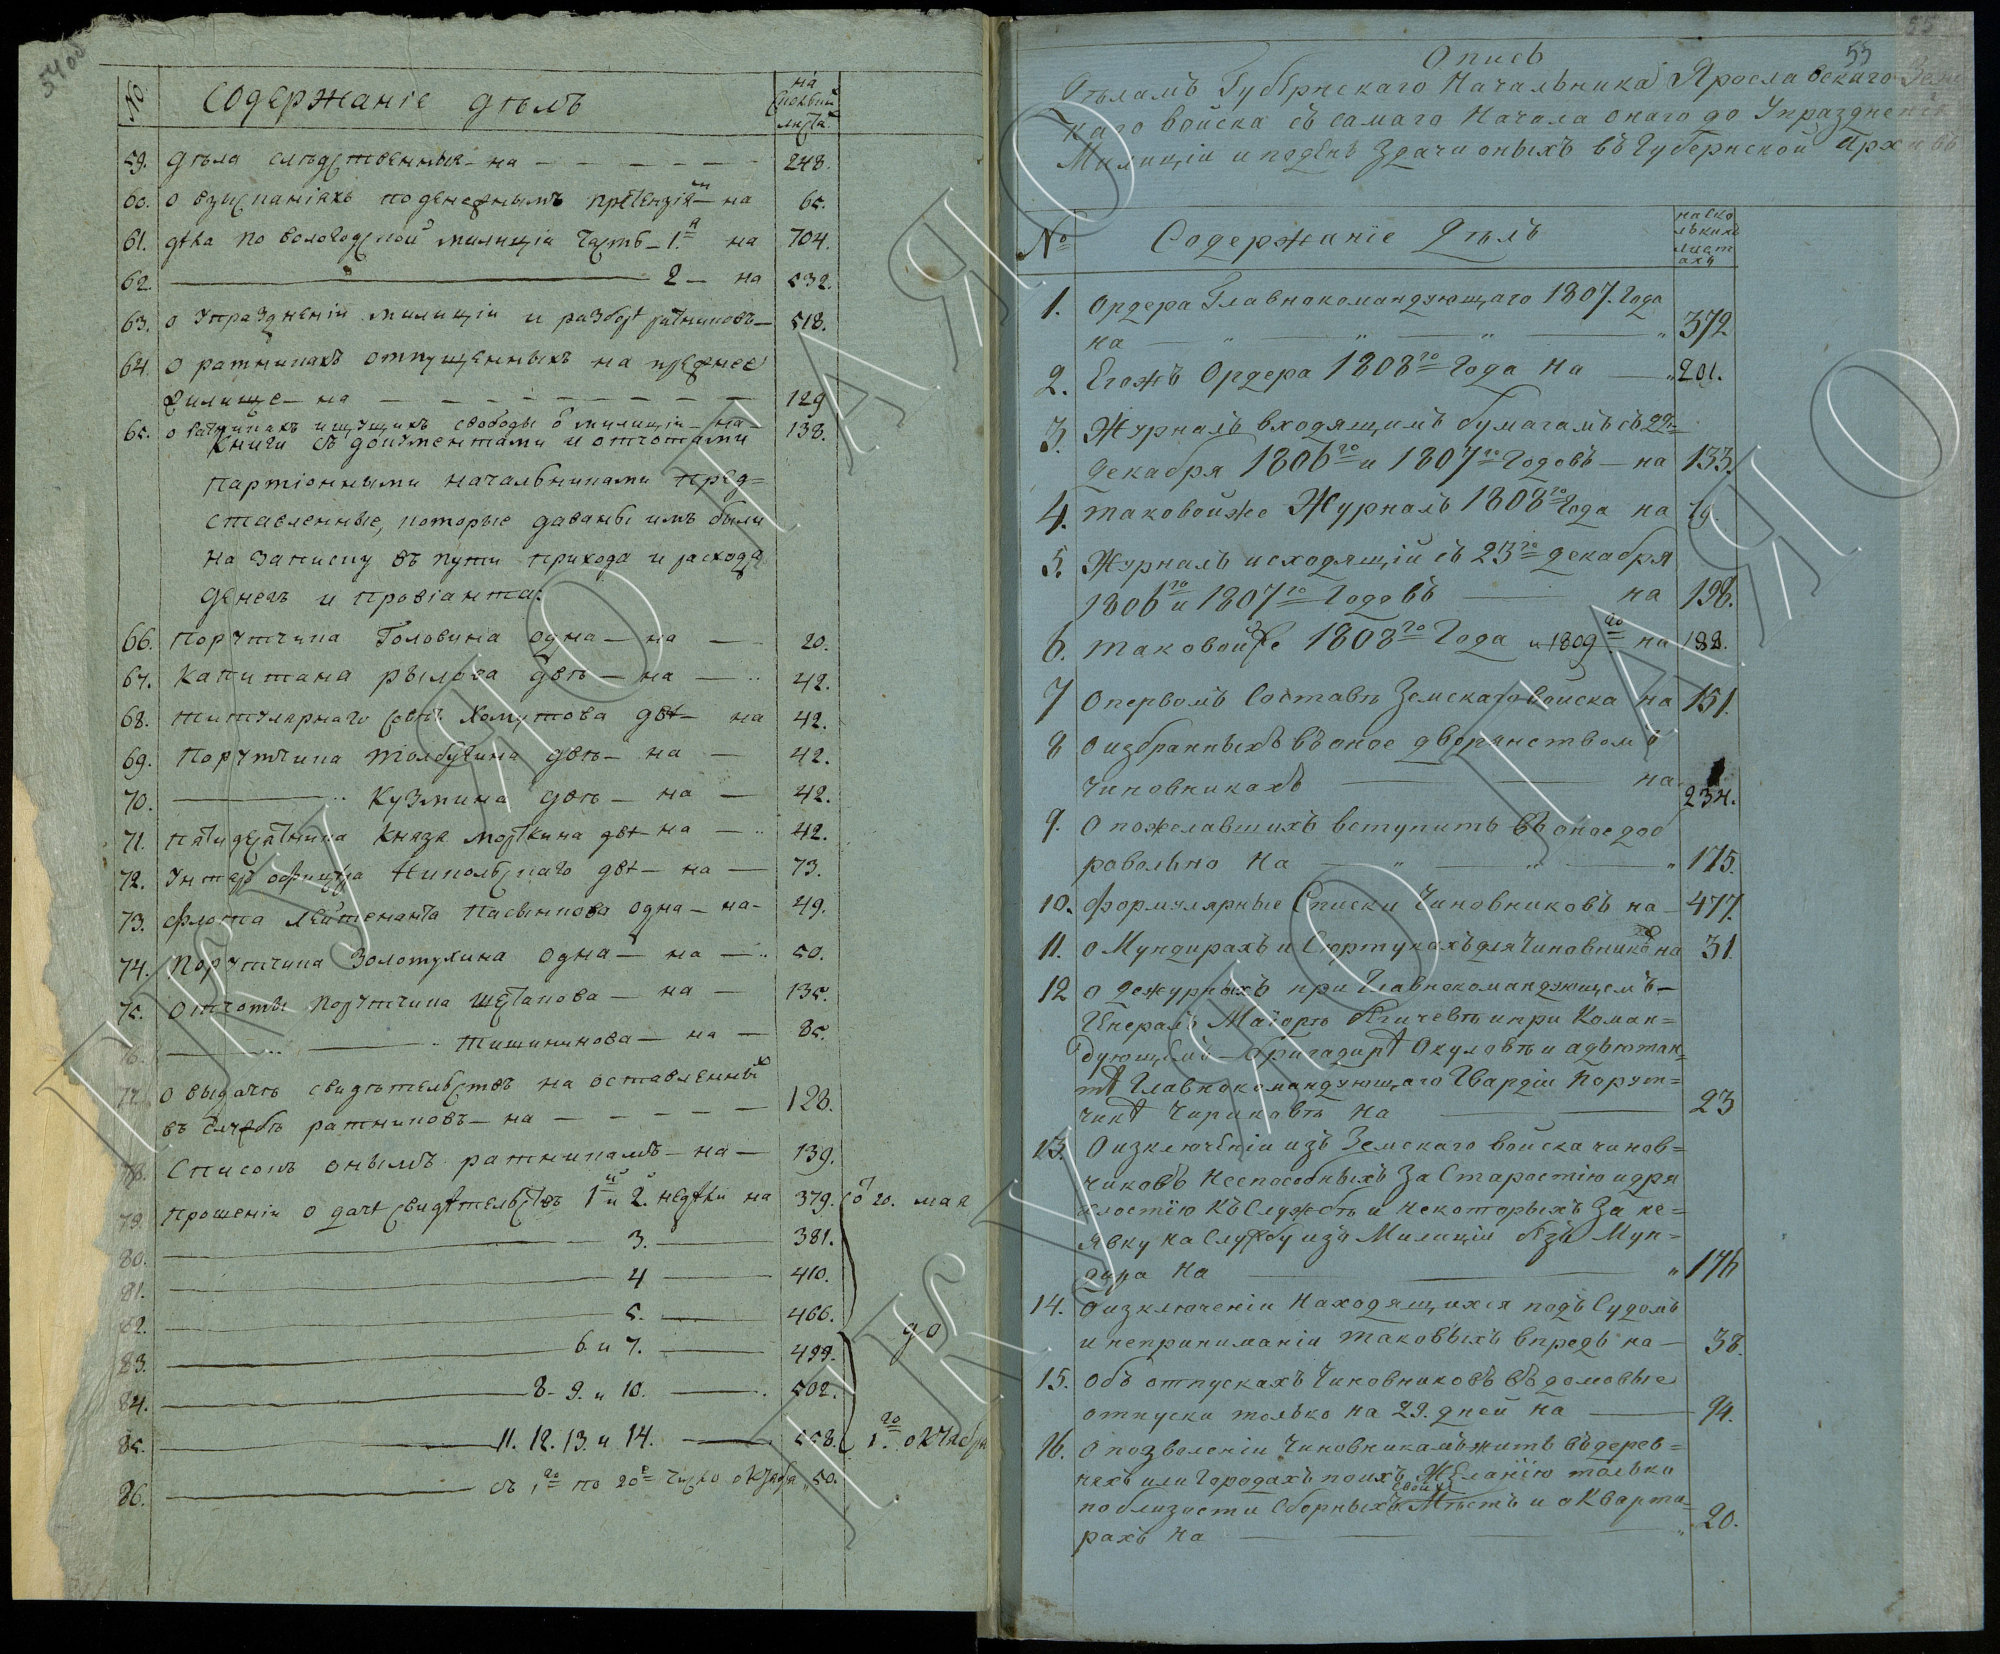 54 об
№
Содержаніе дѣлъ
на
сколькихъ
листа
59. дѣла слѣдственныя – на 248.
60. О взысканіяхъ по денежнымъ претензіямъ – на 65.
61. дѣла по вологодской милиціи часть – 1.я на 704.
62. 2 – на 532.
63. О упраздненіи милиціи и разборѣ ратниковъ – 518.
64. О ратникахъ отпущенныхъ на прежнее
жилище – на 129
65. О ратникахъ ищущихъ свободы о милиціи – на – 138.
Книги съ документами и отчотами
партіонными начальниками пред=
ставленные, которые даваны имъ были
на записку въ пути прихода и расхода
денегъ и провіанта:
66. Порутчика Головина одна – на – 20.
67. Капитана рылова двѣ – на – 42.
68. титулярнаго совѣт. Хомутова двѣ – на 42.
69. Порутчика Толбузина двѣ – на – 42.
70. Кузмина двѣ – на – 42.
71. Пятидесятника Князя Морткина двѣ – на – 42.
72. Унтер офицера Никольскаго двѣ – на – 73.
73. Флота Лейтенанта Пасынкова одна – на – 49.
74. Порутчика Золотухина одна – на – 50.
75. Отчоты Порутчика Щепанова – на – 135.
76. Тишининова – на – 85.
77. О выдачѣ свидѣтельствъ на оставленныхъ
въ службѣ ратниковъ – на 128.
78. Списокъ онымъ ратникамъ – на – 139.
79. Прошеніи о дачѣ свидѣтельствъ 1й и 2й недѣли на 379. съ 20. мая
80. 3. 381.
81. 4 410.
82. 5. 466.
до
83. 6 и 7. 499.
84. 8. 9. и 10. 502.
85. 11. 12. 13. и 14. 558. 1.го октября
86. съ 1го по 20е число октября 50.
55
55
Опись
Дѣламъ Губернскаго Начальника Ярославскаго Зем
скаго войска съ самаго Начала онаго до Упраздненія
Милиціи и по день Здачи оныхъ въ Губернской Архивъ
№
Содержаніе Дѣлъ
на ско
лькихъ
лист
ахъ
1. Ордера Главнокомандующаго 1807. Года
на 372
2. Егожъ Ордера 1808го Года на 201.
3. Журналъ входящимъ бумагамъ съ 22го
декабря 1806го и 1807го Годовъ – на 133.
4. таковойже Журналъ 1808го Года на 79.
5. Журналъ исходящій съ 23го декабря
1806го и 1807го Годовъ на 198.
6. таковойже 1808го Года и 1809го на 188.
7 О первомъ Составѣ Земскаго войска на 151.
8 О избранныхъ въ оное дворянствомъ
чиновникахъ на 234.
9. О пожелавшихъ вступить въ оное доб
ровольно на 175.
10. Формулярные Списки Чиновниковъ на – 477.
11. О Мундирахъ и Сюртукахъ для Чиновниковъ на 31.
12 О дежурныхъ при Главнокомандующемъ –
Генералъ Маіорѣ Ягичевѣ и при Коман=
дующемъ – бригадирѣ Окуловѣ и адъютан=
тѣ Главнокомандующаго Гвардіи Порут=
чикѣ Чириковѣ на 23
13. О изключеніи изъ Земскаго войска чинов=
никовъ Неспособныхъ За Старостію и дря
хлостію къ Службѣ и Некоторыхъ За не=
явку на Службу изъ Милиціи безъ Мун=
дира на 176
14. О изключеніи Находящихся подъ Судомъ
и неприниманіи таковыхъ впредь на – 38.
15. Объ отпускахъ Чиновниковъ въ домовые
отпуски только на 29. дней на 94.
16. О позволеніи Чиновникамъ жить въ дерев=
няхъ или Городахъ по ихъ Желанію только
по близости Сборныхъ своихъ Мѣстъ и о Кварти=
рахъ на 20.
ГКУ ЯО ГАЯО
ГКУ ЯО ГАЯО